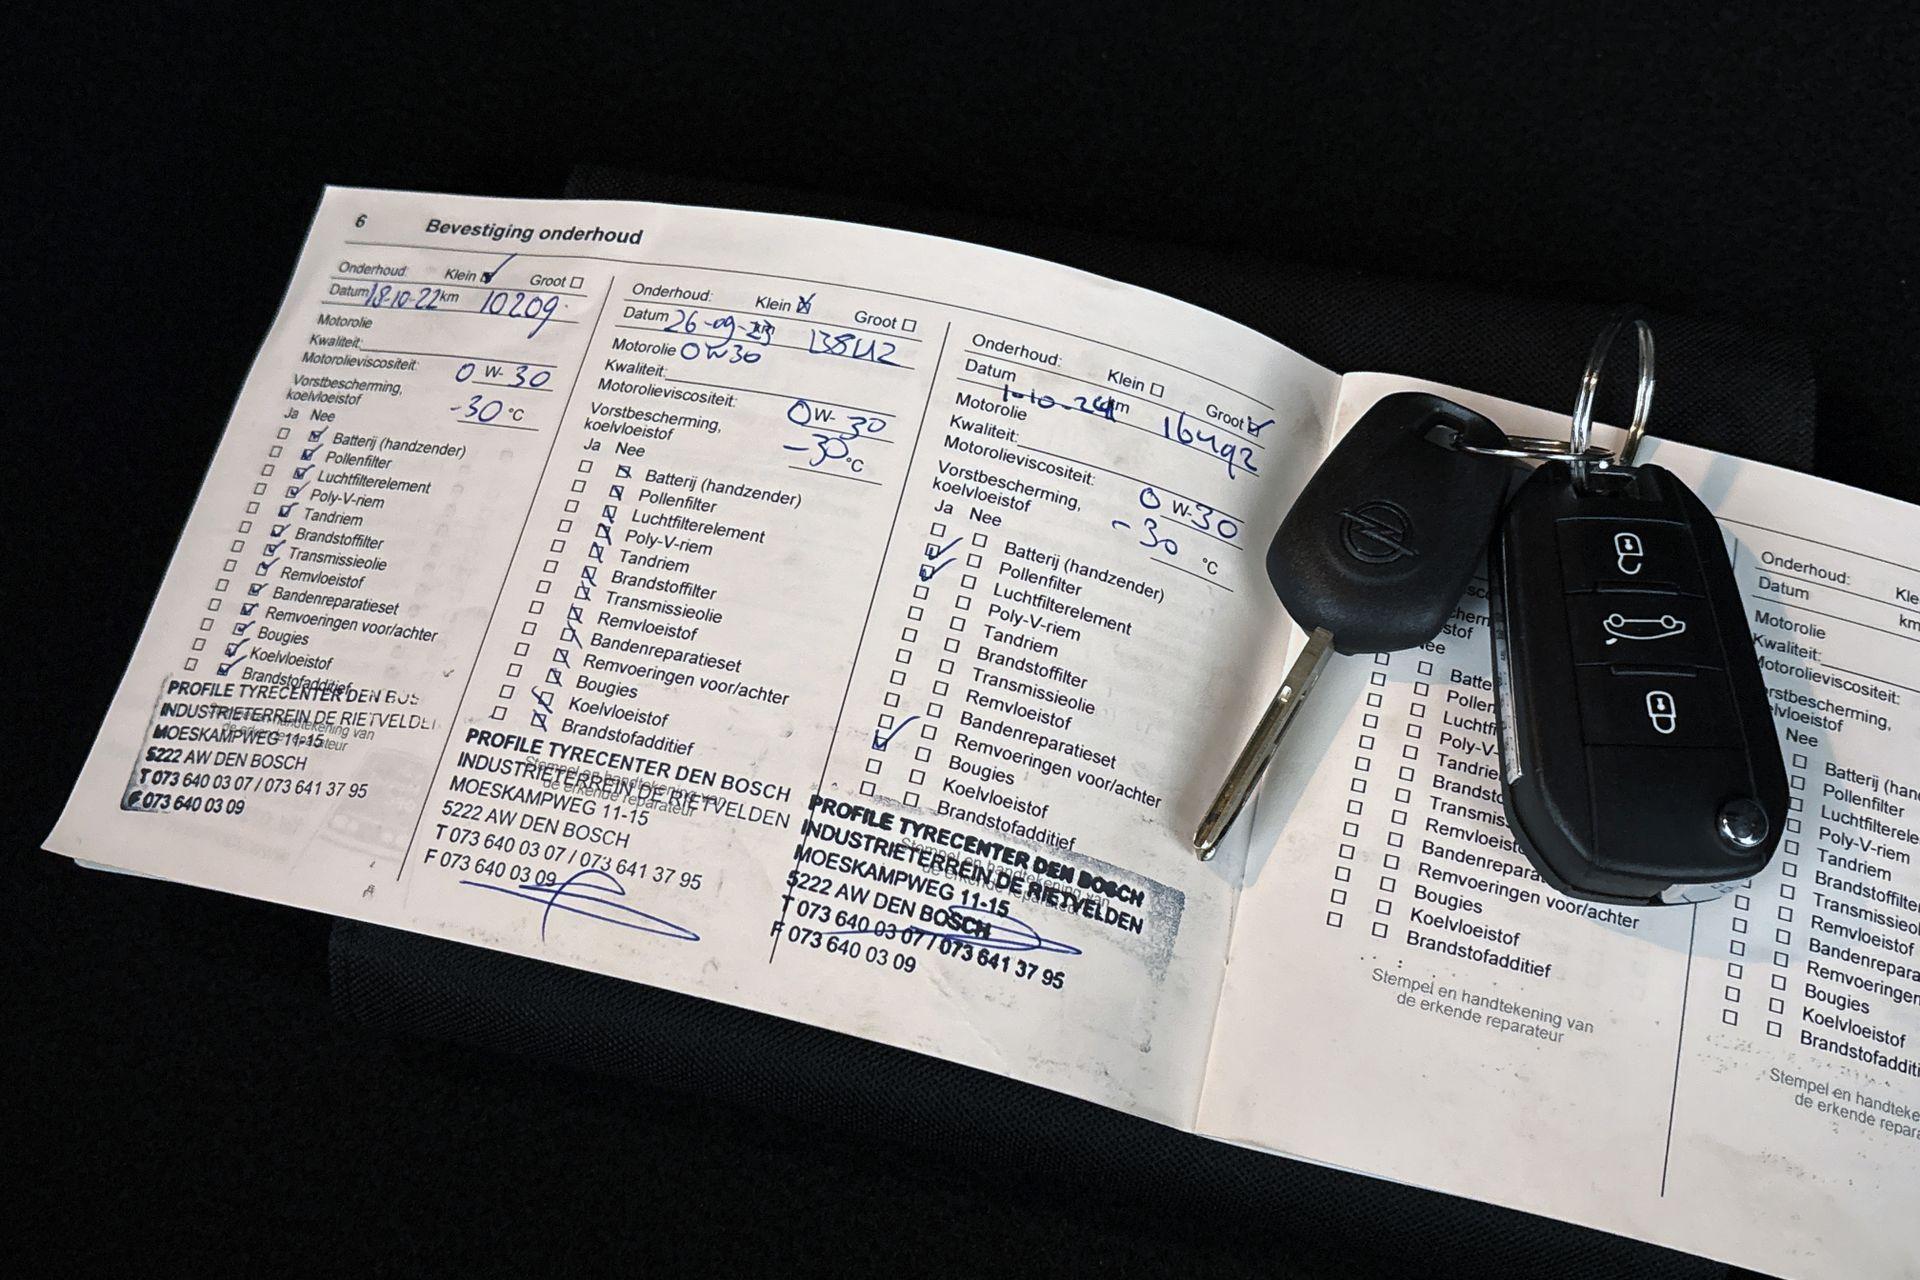 6 Bevestiging onderhoud
Onderhoud: Klein Groot
Datum 18-10-22 km 10209
Motorolie
Kwaliteit:
Motorolieviscositeit: 0 W-30
Vorstbescherming,
koelvloeistof -30 °C
Ja Nee
Batterij (handzender)
Pollenfilter
Luchtfilterelement
Poly-V-riem
Tandriem
Brandstoffilter
Transmissieolie
Remvloeistof
Bandenreparatieset
Remvoeringen voor/achter
Bougies
Koelvloeistof
Brandstofadditief
PROFILE TYRECENTER DEN BOS
INDUSTRIETERREIN DE RIETVELDE
MOESKAMPWEG 11-15
5222 AW DEN BOSCH
T 073 640 03 07 / 073 641 37 95
F 073 640 03 09
Onderhoud: Klein Groot
Datum 26-09-23 13842
Motorolie 0W30
Kwaliteit:
Motorolieviscositeit: 0W-30
Vorstbescherming,
koelvloeistof -30 °C
Ja Nee
Batterij (handzender)
Pollenfilter
Luchtfilterelement
Poly-V-riem
Tandriem
Brandstoffilter
Transmissieolie
Remvloeistof
Bandenreparatieset
Remvoeringen voor/achter
Bougies
Koelvloeistof
Brandstofadditief
Stempel en handtekening van
de erkende reparateur
PROFILE TYRECENTER DEN BOSCH
INDUSTRIETERREIN DE RIETVELDEN
MOESKAMPWEG 11-15
5222 AW DEN BOSCH
T 073 640 03 07 / 073 641 37 95
F 073 640 03 09
Onderhoud: Klein Groot
Datum 1-10-24 km 16492
Motorolie
Kwaliteit:
Motorolieviscositeit: 0 W-30
Vorstbescherming,
koelvloeistof -30 °C
Ja Nee
Batterij (handzender)
Pollenfilter
Luchtfilterelement
Poly-V-riem
Tandriem
Brandstoffilter
Transmissieolie
Remvloeistof
Bandenreparatieset
Remvoeringen voor/achter
Bougies
Koelvloeistof
Brandstofadditief
PROFILE TYRECENTER DEN BOSCH
INDUSTRIETERREIN DE RIETVELDEN
MOESKAMPWEG 11-15
5222 AW DEN BOSCH
T 073 640 03 07 / 073 641 37 95
F 073 640 03 09
Batte
Pollen
Luchtf
Poly-V-
Tandrie
Brandsto
Transmis
Remvloeist
Bandenrepara
Remvoeringen voor/achter
Bougies
Koelvloeistof
Brandstofadditief
Stempel en handtekening van
de erkende reparateur
Onderhoud: Kle
Datum km
Motorolie
Kwaliteit:
Motorolieviscositeit:
Nee
Batterij (han
Pollenfilter
Luchtfilterele
Poly-V-riem
Tandriem
Brandstoffilter
Transmissieol
Remvloeistof
Bandenrepara
Remvoeringen
Bougies
Koelvloeistof
Brandstofadditi
Stempel en handteke
de erkende repara